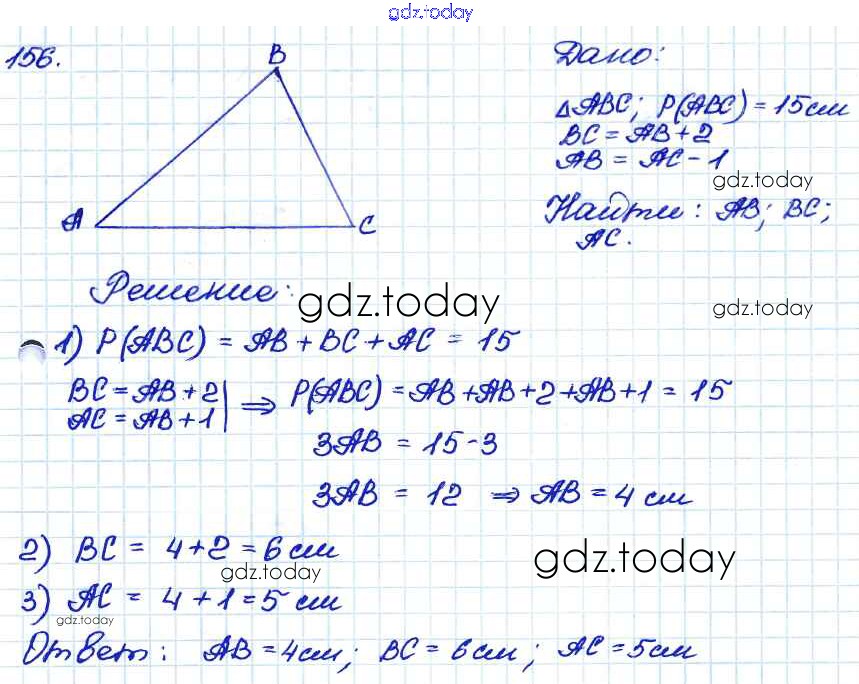 gdz.today
156.
B
A
C
Дано:
△ABC; P(ABC) = 15см
BC = AB + 2
AB = AC - 1
gdz.today
Найти: AB; BC;
AC.
Решение:
gdz.today
gdz.today
1) P(ABC) = AB + BC + AC = 15
BC = AB + 2
AC = AB + 1
⇒ P(ABC) = AB + AB + 2 + AB + 1 = 15
3AB = 15 - 3
3AB = 12 ⇒ AB = 4 см
2) BC = 4 + 2 = 6 см
gdz.today
gdz.today
3) AC = 4 + 1 = 5 см
gdz.today
Ответ: AB = 4см; BC = 6см; AC = 5см